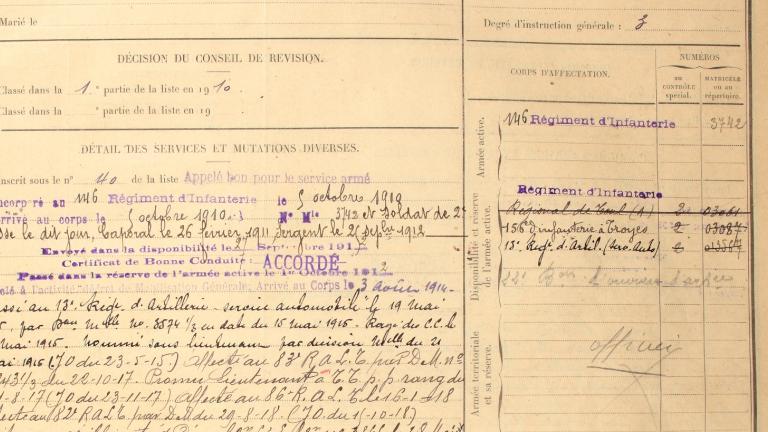 Marié le
Degré d'instruction générale : 3
DÉCISION DU CONSEIL DE REVISION.
Classé dans la 1re partie de la liste en 1910.
Classé dans la partie de la liste en 19
DÉTAIL DES SERVICES ET MUTATIONS DIVERSES.
Inscrit sous le n° 40 de la liste Appelé bon pour le service armé
ncorporé au 146 Régiment d'Infanterie le 5 octobre 1910
arrivé au corps le 5 octobre 1910 N° Mle 3742 et soldat de 2
de le dit jour, Caporal le 26 février 1911 Sergent le 25 septbre 1912
Envoyé dans la disponibilité le 27 Septembre 1912
Certificat de Bonne Conduite : ACCORDÉ
Passé dans la réserve de l'armée active le 1er Octobre 1912
pelé à l'activité décret de Mobilisation Générale; Arrivé au Corps le 3 août 1914.
ssé au 13e Régt d'Artillerie service automobile le 19 mai
par Don Mlle no 3574 1/3 en date du 15 mai 1915. Rayé des C.C. le
mai 1915. nommé sous lieutenant par décision Mlle du 21
ai 1915 (JO du 23-5-15) Affecté au 83e R.A.L.T. par D.M. no
2431/3 du 22-10-17. Promu Lieutenant à T.T. p.p. rang du
-8-17 (JO du 23-11-17) Affecté au 86e R.A.L.T. le 16-1-18
ffecté au 82e R.A.L.T. par D.M. du 29-8-18. (JO du 1-10-18)
CORPS D'AFFECTATION.
NUMÉROS
au CONTRÔLE spécial.
MATRICULE ou au répertoire.
Armée active.
146 Régiment d'Infanterie 3742
Disponibilité et réserve de l'armée active.
Régiment d'Infanterie
Régional de Toul (1)
156e d'infanterie à Troyes 2
13e Régt d'Artil. (serv. Auto)
Armée territoriale et sa réserve.
officier